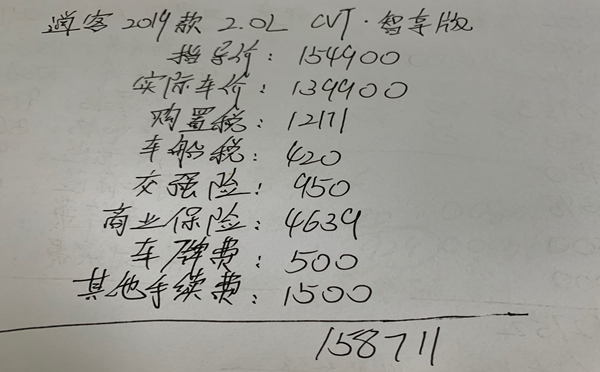 逍客 2019款 2.0L CVT·智享版
指导价：154900
实际车价：139900
购置税：12171
车船税：420
交强险：950
商业保险：4639
车牌费：500
其他手续费：1500
158711